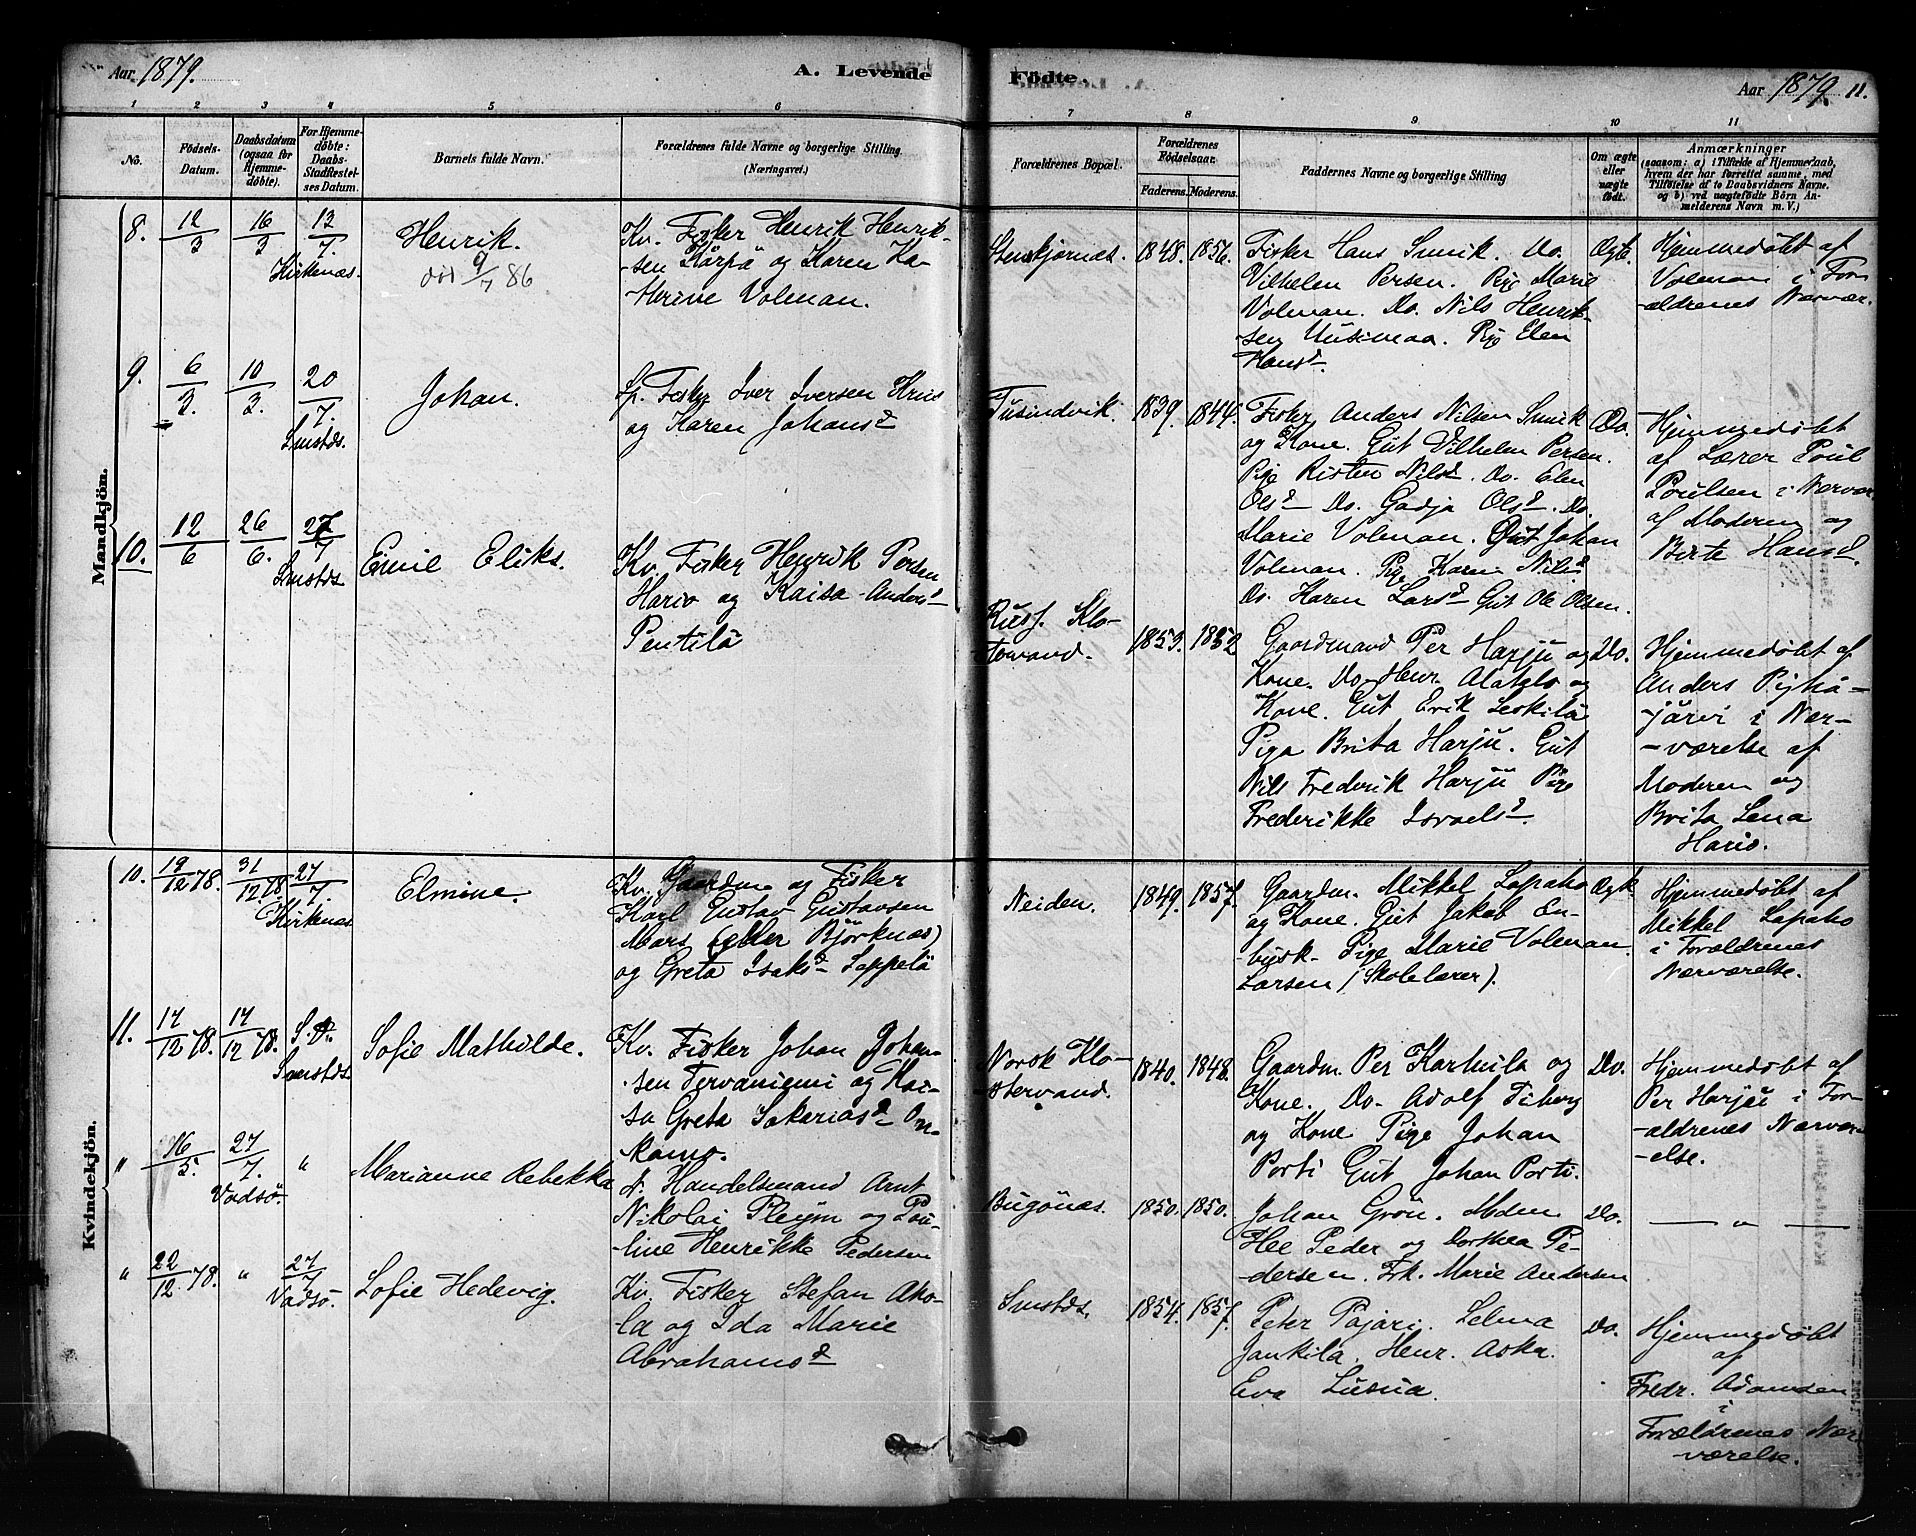 Aar 1879.
A. Levende
Födte.
Aar 1879. 11.
1 2 3 4 5 6 7 8 9 10 11
No.
Födsels-
Datum.
Daabsdatum
(ogsaa for
Hjemme-
döbte).
For Hjemme-
döbte:
Daabs-
Stadfæstel-
ses Datum.
Barnets fulde Navn.
Forældrenes fulde Navne og borgerlige Stilling
(Næringsvei.)
Forældrenes Bopæl.
Forældrenes
Födselsaar.
Faderens. Moderens.
Faddernes Navne og borgerlige Stilling
Om ægte
eller
uægte
födt.
Anmærkninger
(saasom: a) i Tilfælde af Hjemmedaab,
hvem der har forrettet samme, med
Tilföielse af to Daabsvidners Navne.
og b) ved uægtefödte Börn An-
melderens Navn m. V.)
Mandkjön.
8. 12/3 16/3 13/7
Kirkenæs.
Henrik.
död 9/7 86
Kv. Fisker Henrik Henrik-
sen Karpa og Karen Ka-
thrine Volman.
1848. 1856.
Fisker Hans Smik. Do.
Vilhelm Persen. Pige Marie
Volman. Do. Nils Henrik-
sen Uusimaa. Pige Elen
Hansd
Ægte.
Hjemmedöbt af
Volman i For-
ældrenes Nærvær.
9. 6/3. 10/3. 20/7.
Smstds.
Johan.
Lp. Fisker Iver Iversen Krus
og Karen Johansd
Tusindvik. 1839. 1844.
Fisker Anders Nilsen Smik
og Kone. Gut Vilhelm Persen.
Pige Risten Nilsd. Do. Elen
Olsd Do. Gadja Olsd. Do.
Marie Volman. Gut Johan
Volman. Pige Karen Nilsd
Do. Karen Larsd Gut Ole Olsen.
Do.
Hjemmedöbt
af Lærer Poul
Poulsen i Nærvær
af Moderen og
Berte Hansd.
10. 12/6 26/6. 27/7
Smstds
Emil Eliks.
Kv. Fisker Henrik Persen
Hario og Kaisa Andersd
Pentilä
Russ. Klo-
stervand. 1853. 1852
Gaardmand Per Harju og
Kone. Do. Henr. Alatalo og
Kone. Gut Erik Leskilä
Pige Brita Harju. Gut
Nils Frederik Harju Pige
Frederikke Israelsd.
Do.
Hjemmedöbt af
Anders Pyhä-
järvi i Nær-
-værelse af
Moderen og
Brita Lena
Hario.
Kvindekjön.
10. 19/12 78. 31/12 78 27/7.
Kirkenæs
Elmine.
Kv. Gaardm. og Fisker
Karl Gustav Gustavsen
Mars (eller Björknæs)
og Greta Isaksd Lappelä
Neiden. 1849. 1857.
Gaardm. Mikkel Lapaho
og Kone. Gut Jakob En-
-busk. Pige Marie Volman.
Larsen (Skolelærer).
Ægte
Hjemmedöbt af
Mikkel Lapaho
i Forældrenes
Nærværelse.
11. 17/12 78. 17/12 78. S. D.
Smstds
Sofie Mathilde.
Kv. Fisker Johan Johan-
sen Tervaniemi og Kai-
sa Greta Sakariasd On-
kamo.
Norsk Klo-
stervand. 1840. 1848.
Gaardm. Per Karhula og
Kone. Do. Adolf Fiberg
og Kone Pige Johan
Porti Gut Johan Porti.
Do.
Hjemmedöbt af
Per Harju i For-
-ældrenes Nærvær-
-else.
" 16/5. 27/7. "
Vadsö.
Marianne Rebekka
N. Handelsmand Arnt
Nikolai Pleym og Pau-
-line Henrikke Pedersen
Bugönæs. 1850. 1850.
Johan Grön. Moder
Peder og Dorthea Pe-
dersen. Frk. Marie Andersen
Do.
— " —
" 22/12 78. " 27/7
Vadsö.
Sofie Hedevig.
Kv. Fisker Stefan Ako-
la og Ida Marie
Abrahamsd
Smstds. 1854. 1857.
Peter Pajari. Selma
Jankila. Henr. Aska.
Eva Lusua.
Do.
Hjemmedöbt
af
Fredr. Adamsen
i
Forældrenes Nær-
værelse.